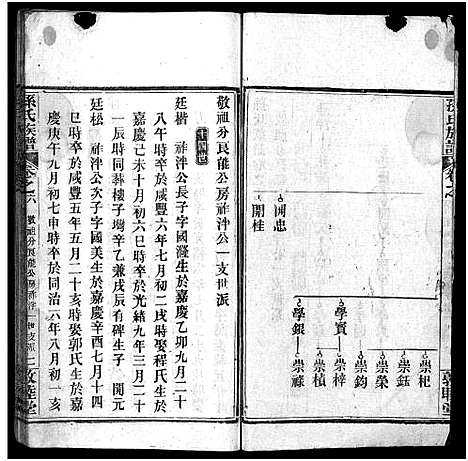 崇杞
崇鈺
崇榮
崇鈞
崇梓
崇楨
崇祿
學賓
學銀
開忠
開桂
敬祖分良能公房祚泮公一支世派
十四世
廷楷 祚泮公長子字國灐生於嘉慶乙卯九月二十
八午時卒於咸豐六年七月初二戌時娶程氏生於
嘉慶己未十月初六巳時卒於光緒九年三月二十
一辰時同葬樓子塆辛乙兼戌辰有碑生子 開元
廷松 祚泮公次子字國美生於嘉慶辛酉七月十四
巳時卒於咸豐五年五月二十亥時娶郭氏生於嘉
慶庚午九月初七申時卒於同治六年八月初一亥
孫氏族譜 卷之六 敬祖分良能公房祚泮一世支派 二 敦睦堂